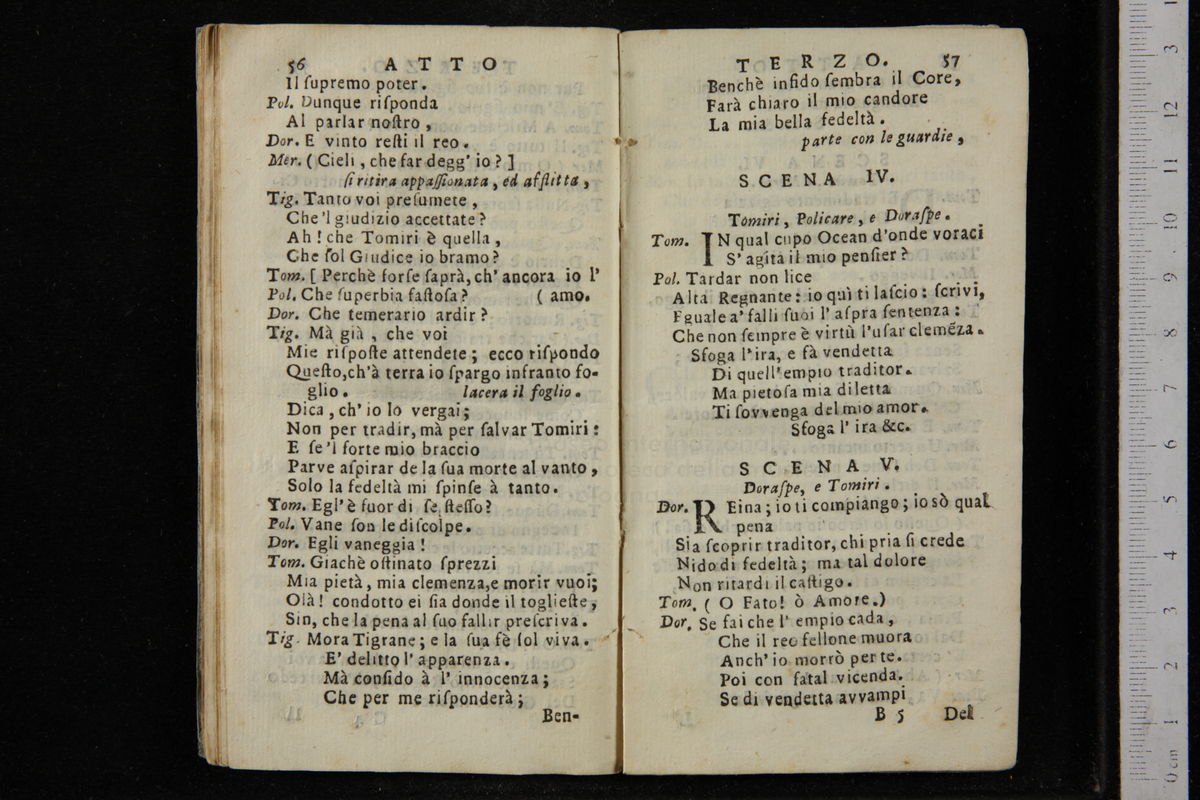 56 ATTO
Il ſupremo poter.
Pol. Dunque riſponda
Al parlar noſtro,
Dor. E vinto reſti il reo.
Mer. ( Cieli, che far degg' io ? ]
ſi ritira appaſſionata, ed afflitta,
Tig. Tanto voi preſumete,
Che'l giudizio accettate?
Ah! che Tomiri è quella,
Che ſol Giudice io bramo?
Tom. [ Perchè forſe ſaprà, ch' ancora io l'
Pol. Che ſuperbia faſtoſa? ( amo.
Dor. Che temerario ardir?
Tig. Mà già, che voi
Mie riſpoſte attendete; ecco riſpondo
Queſto, ch'à terra io ſpargo infranto fo-
glio. lacera il foglio.
Dica, ch' io lo vergai;
Non per tradir, mà per ſalvar Tomiri:
E ſe'l forte mio braccio
Parve aſpirar de la ſua morte al vanto,
Solo la fedeltà mi ſpinſe à tanto.
Tom. Egl' è fuor di ſe ſteſſo?
Pol. Vane ſon le diſcolpe.
Dor. Egli vaneggia!
Tom. Giachè oſtinato ſprezzi
Mia pietà, mia clemenza, e morir vuoi;
Olà! condotto ei ſia donde il toglieſte,
Sin, che la pena al ſuo fallir preſcriva.
Tig. Mora Tigrane; e la ſua fè ſol viva.
E' delitto l' apparenza.
Mà confido à l' innocenza;
Che per me riſponderà;
Ben-
TERZO. 57
Benchè infido ſembra il Core,
Farà chiaro il mio candore
La mia bella fedeltà.
parte con le guardie,
SCENA IV.
Tomiri, Policare, e Doraſpe.
Tom. IN qual cupo Ocean d'onde voraci
S' agita il mio penſier?
Pol. Tardar non lice
Alta Regnante: io quì ti laſcio: ſcrivi,
Eguale a' falli ſuoi l' aſpra ſentenza:
Che non ſempre è virtù l'uſar clemẽza.
Sfoga l'ira, e fà vendetta
Di quell' empio traditor.
Ma pietoſa mia diletta
Ti ſovvenga del mio amor.
Sfoga l' ira &c.
SCENA V.
Doraſpe, e Tomiri.
Dor. REina; io ti compiango; io sò qual
pena
Sia ſcoprir traditor, chi pria ſi crede
Nido di fedeltà; ma tal dolore
Non ritardi il caſtigo.
Tom. ( O Fato! ò Amore.)
Dor. Se fai che l' empio cada,
Che il reo fellone muora
Anch' io morrò per te.
Poi con fatal vicenda.
Se di vendetta avvampi
B 5 Del